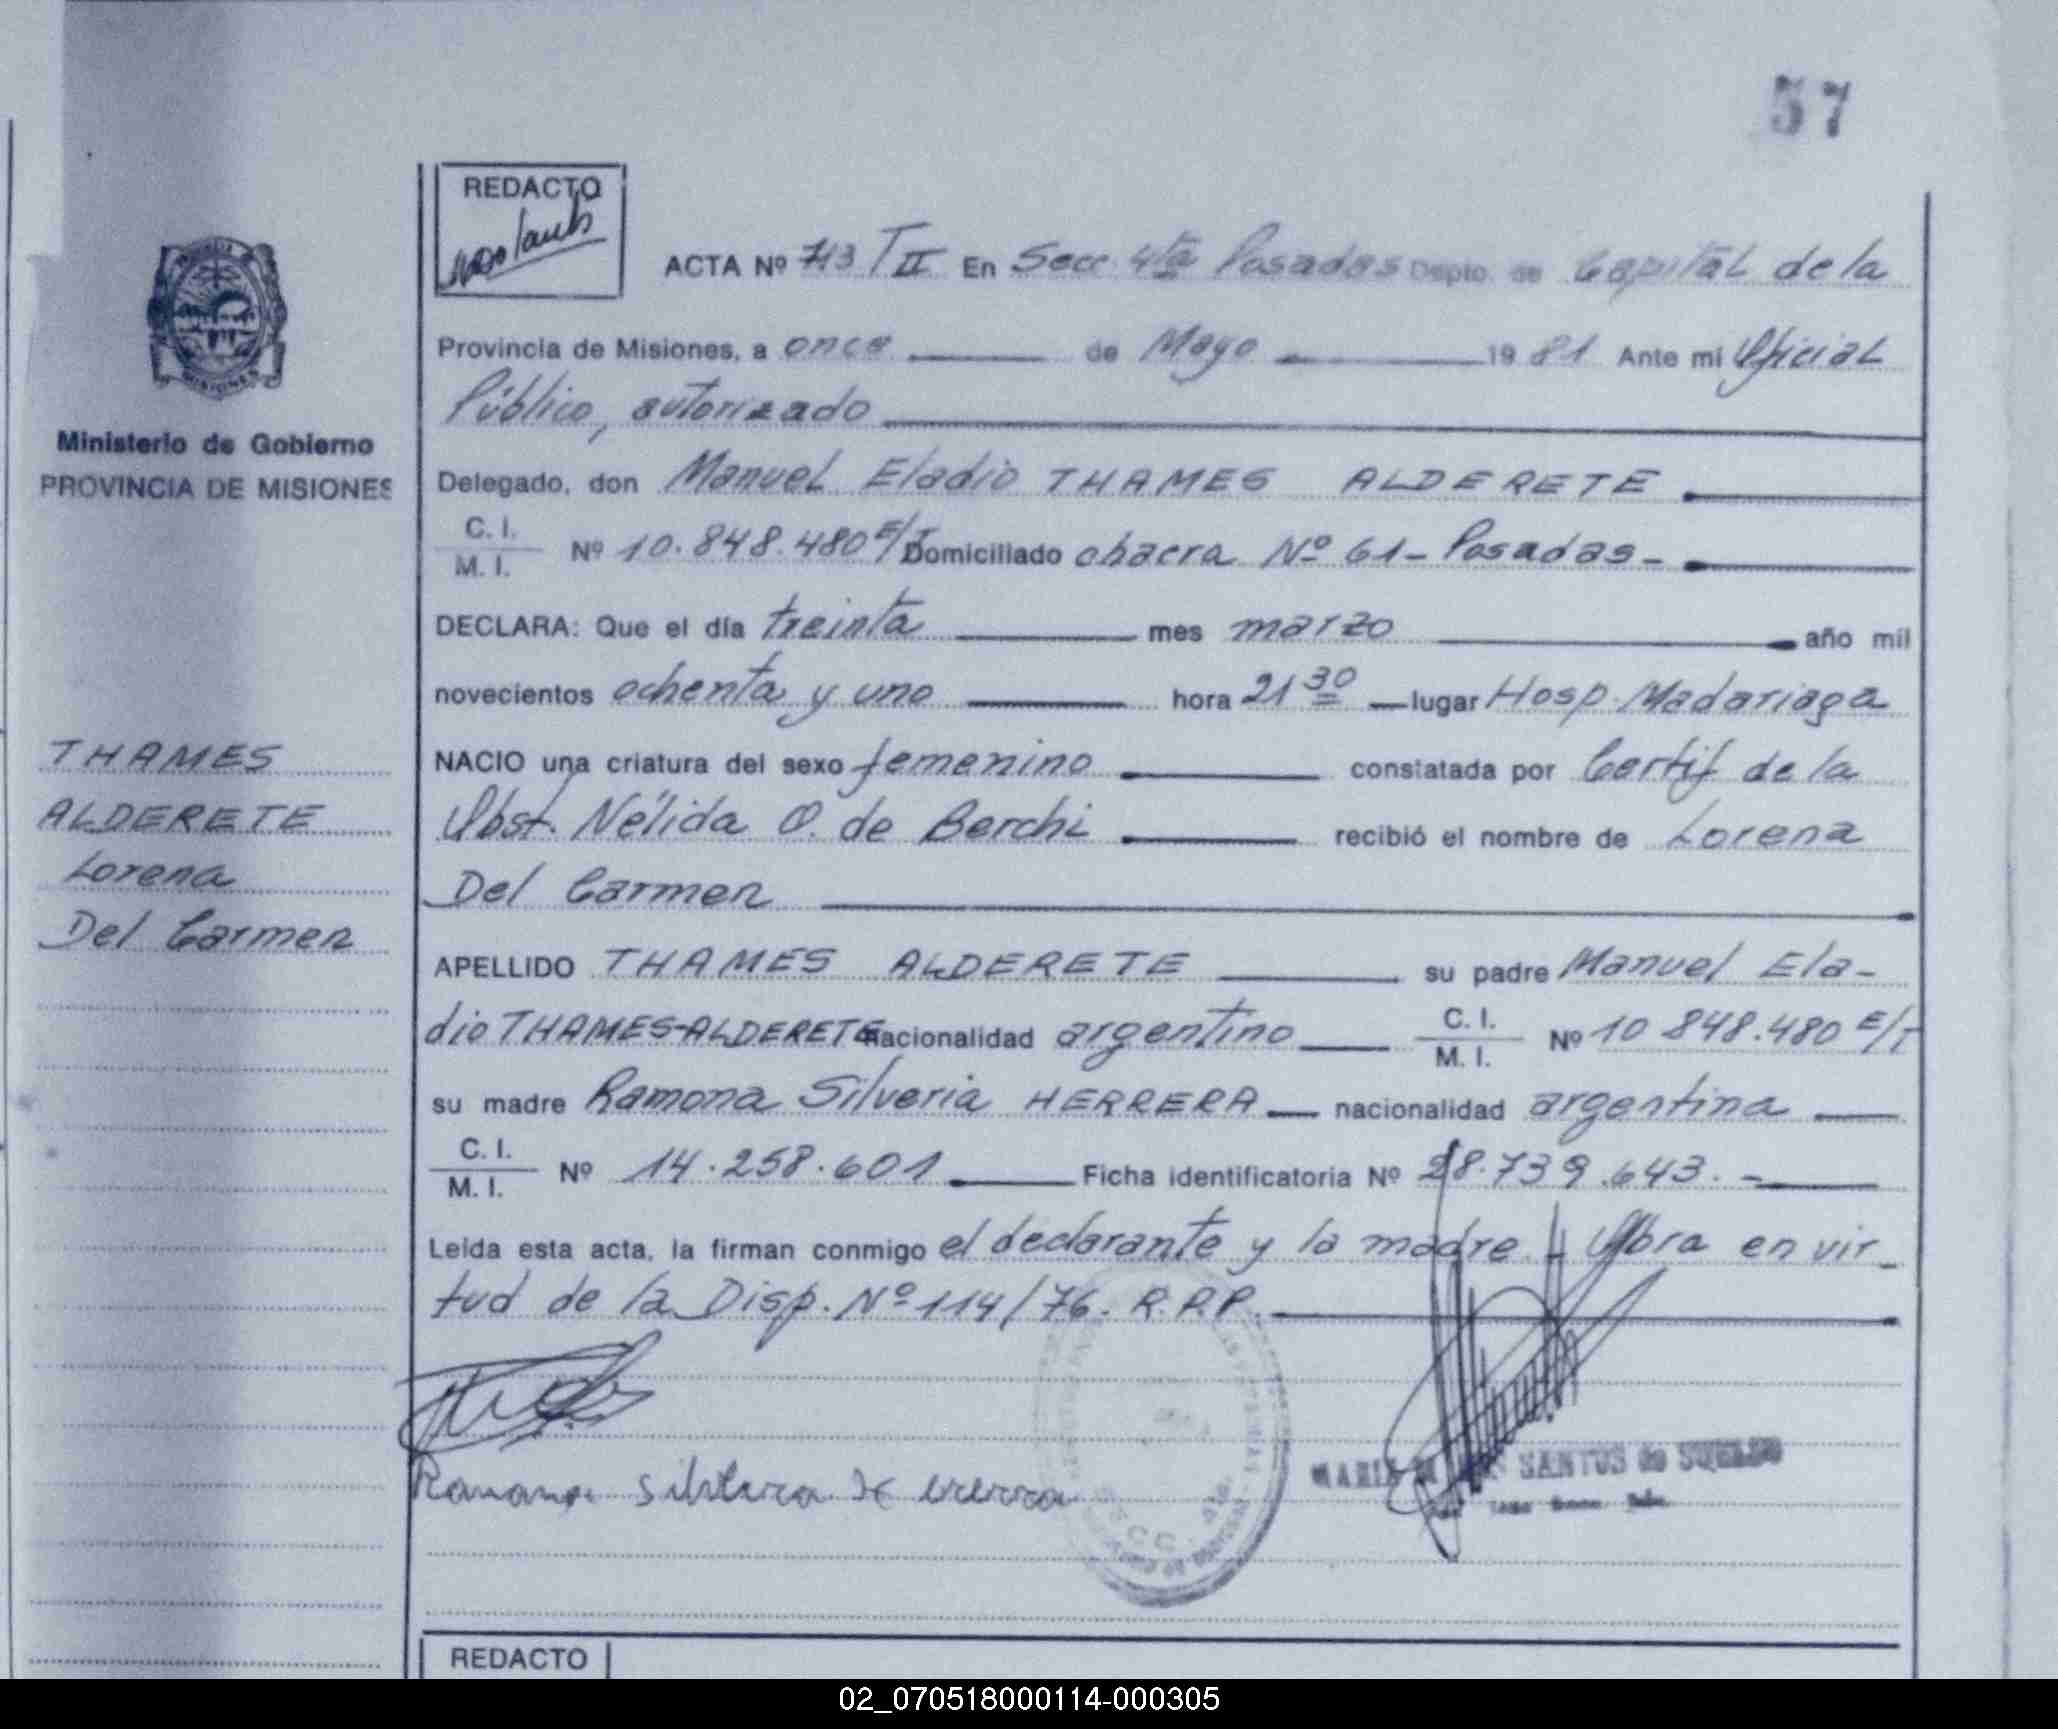 57
REDACTO
ACTA Nº 713 T II En Secc 4ta Posadas Depto. de Capital de la
Provincia de Misiones, a once de Mayo 1981 Ante mi Oficial
Público, autorizado
Ministerio de Gobierno
PROVINCIA DE MISIONES
Delegado, don Manuel Eladio THAMES ALDERETE
C. I.
M. I. Nº 10.848.480 E/T Domiciliado chacra Nº 61 - Posadas -
DECLARA: Que el día treinta mes marzo año mil
novecientos ochenta y uno hora 21 30 lugar Hosp. Madariaga
THAMES
ALDERETE
Lorena
Del Carmen
NACIO una criatura del sexo femenino constatada por Certif de la
Obst. Nélida O. de Berchi recibió el nombre de Lorena
Del Carmen
APELLIDO THAMES ALDERETE su padre Manuel Ela-
dio THAMES-ALDERETE nacionalidad argentino C. I. M. I. Nº 10 848.480 E/T
su madre Ramona Silveria HERRERA nacionalidad argentina
C. I.
M. I. Nº 14.258.601 Ficha identificatoria Nº 28.739.643. -
Leida esta acta, la firman conmigo el declarante y la madre - Obra en vir_
tud de la Disp. Nº 114/76. R.P.P.
SANTOS de SQUELDO
REDACTO
02_070518000114-000305